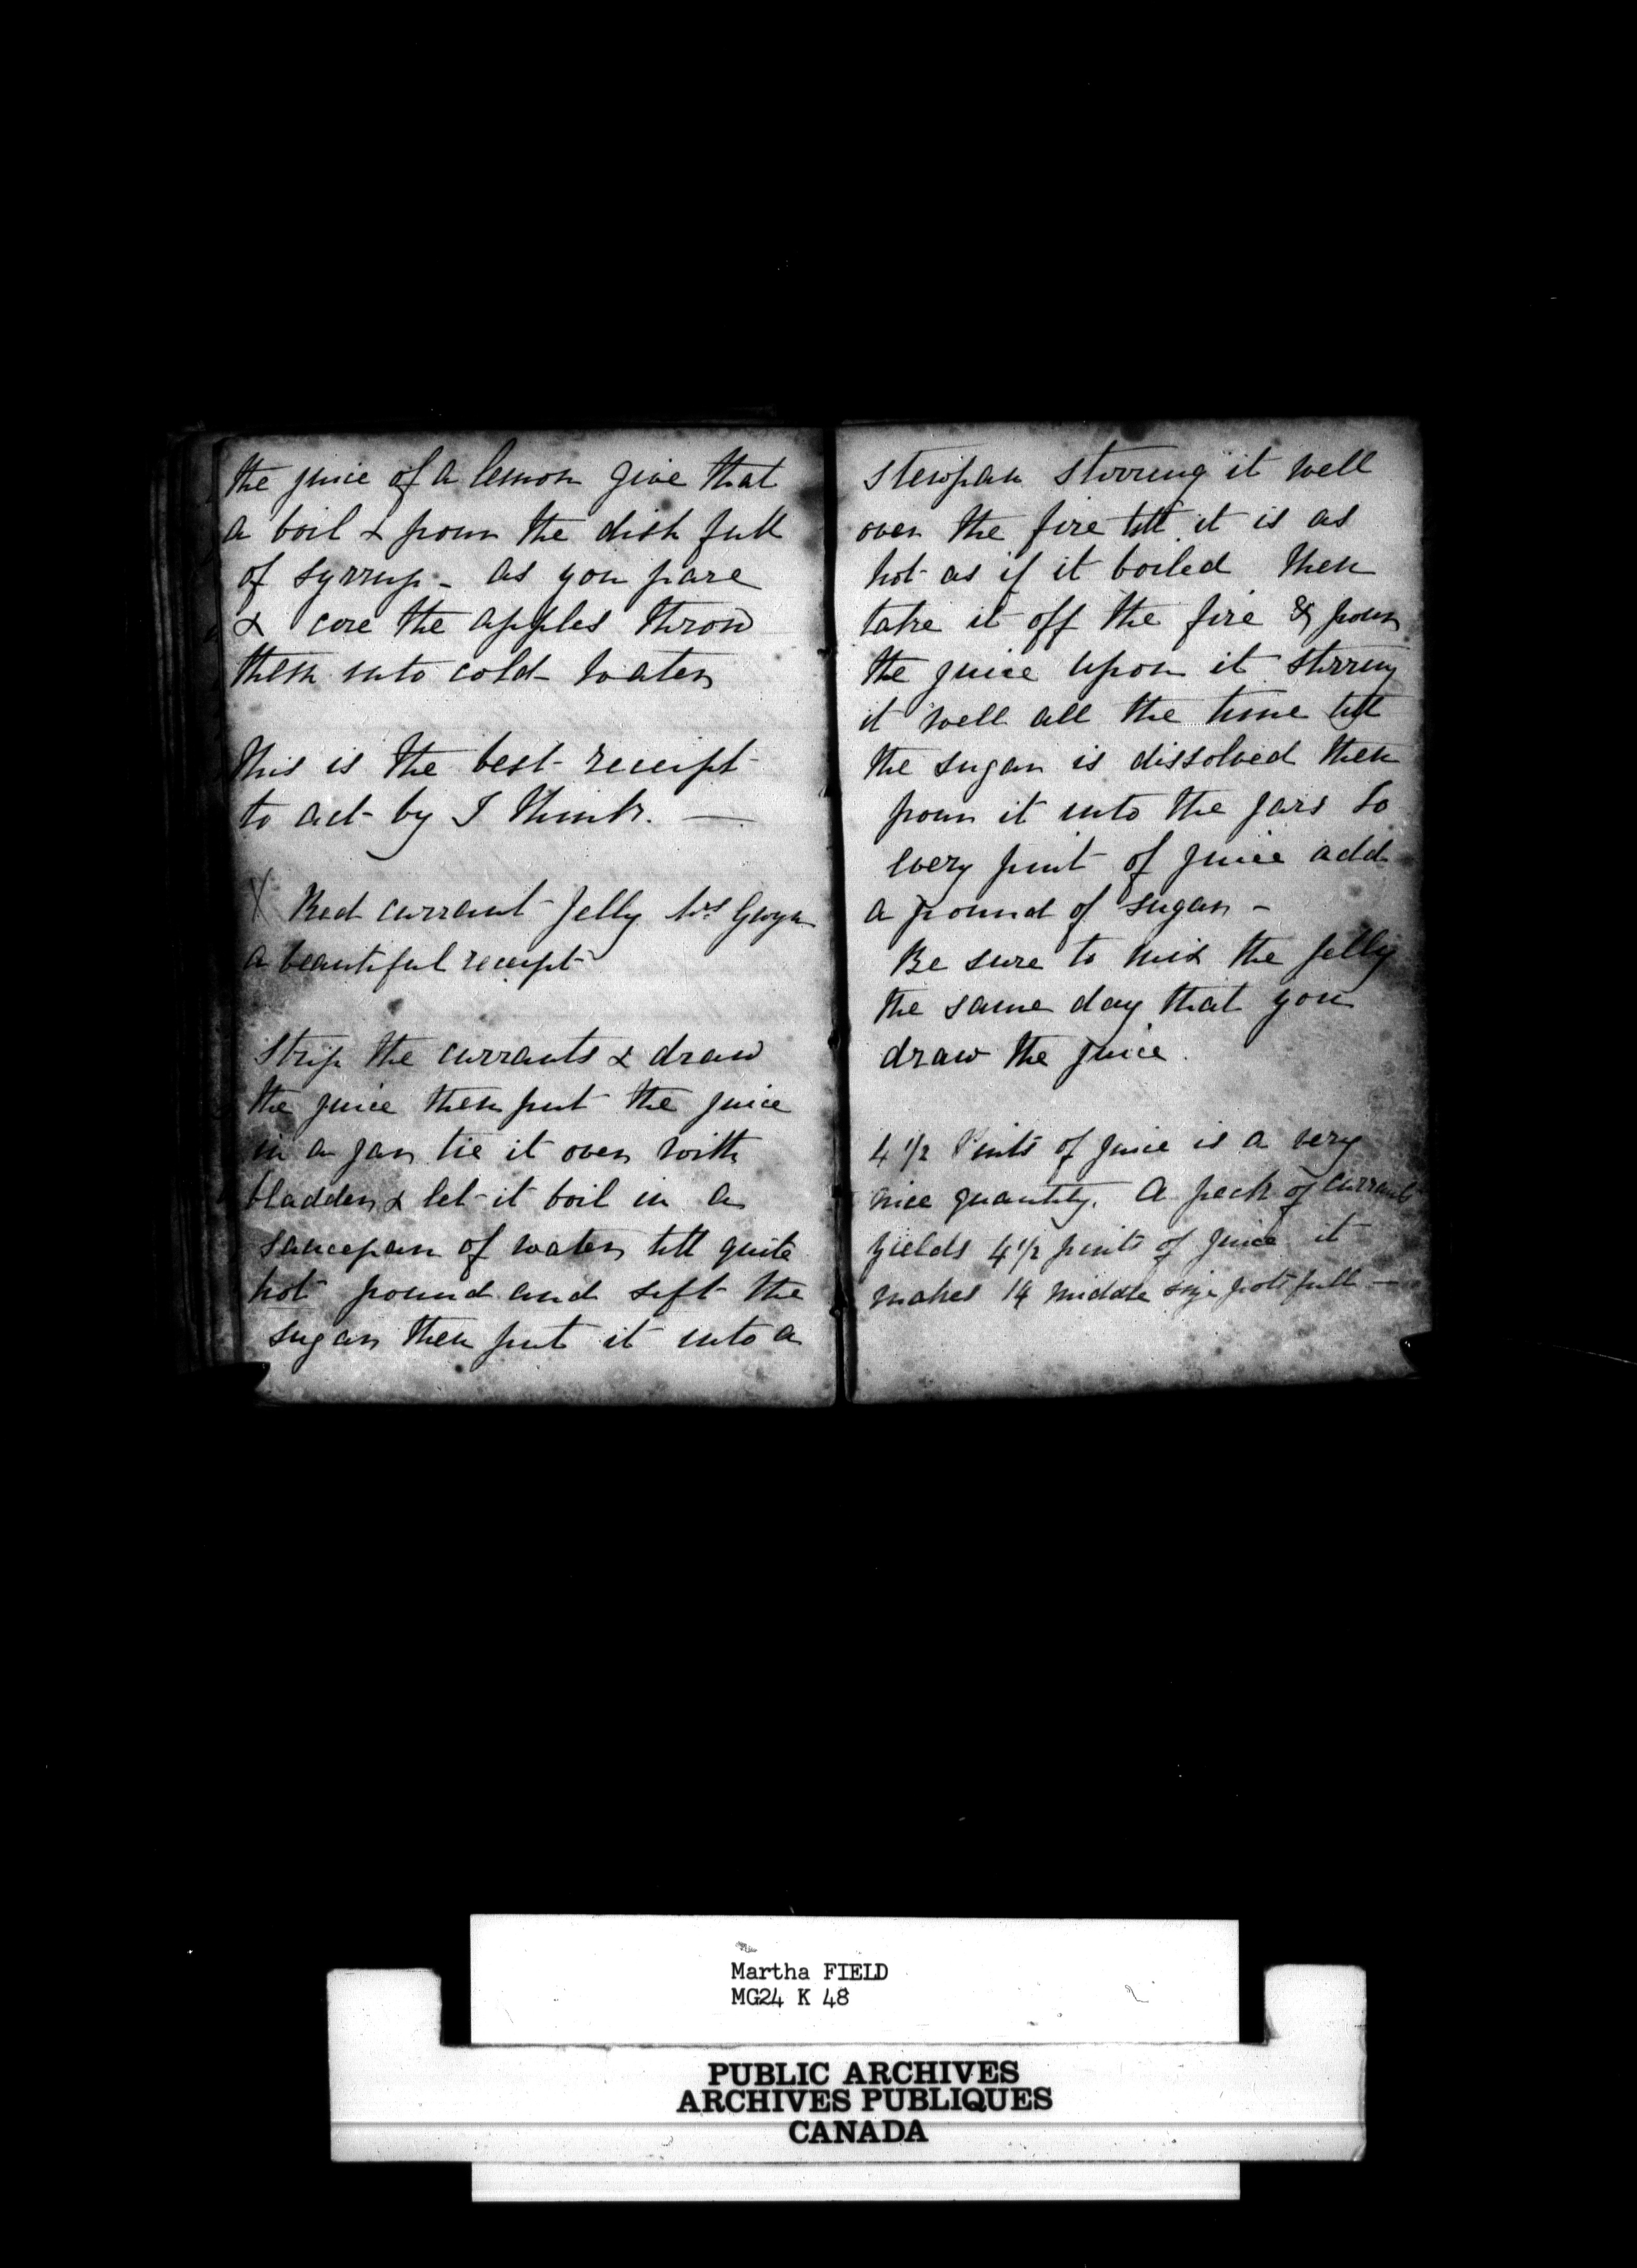 the juice of a lemon give that
a boil & pour the dish full
of syrrup - as you pare
& core the apples throw
them into cold water
this is the best receipt
to act by I think. —
X Red currant Jelly Mrs Gwyn
a beautiful receipt
Strip the currants & draw
the juice then put the juice
in a jar tie it over with
bladder & let it boil in a
saucepan of water till quite
hot pound and sift the
sugar then put it into a
stewpan stirring it well
over the fire till it is as
hot as if it boiled then
take it off the fire & pour
the juice upon it stirring
it well all the time till
the sugar is dissolved then
pour it into the jars to
every pint of juice add
a pound of sugar -
Be sure to mix the jelly
the same day that you
draw the juice.
4 1/2 Pints of juice is a very
nice quantity. A peck of currants
yields 4 1/2 pints of juice it
makes 14 middle size pots full —
Martha FIELD
MG24 K 48
PUBLIC ARCHIVES
ARCHIVES PUBLIQUES
CANADA